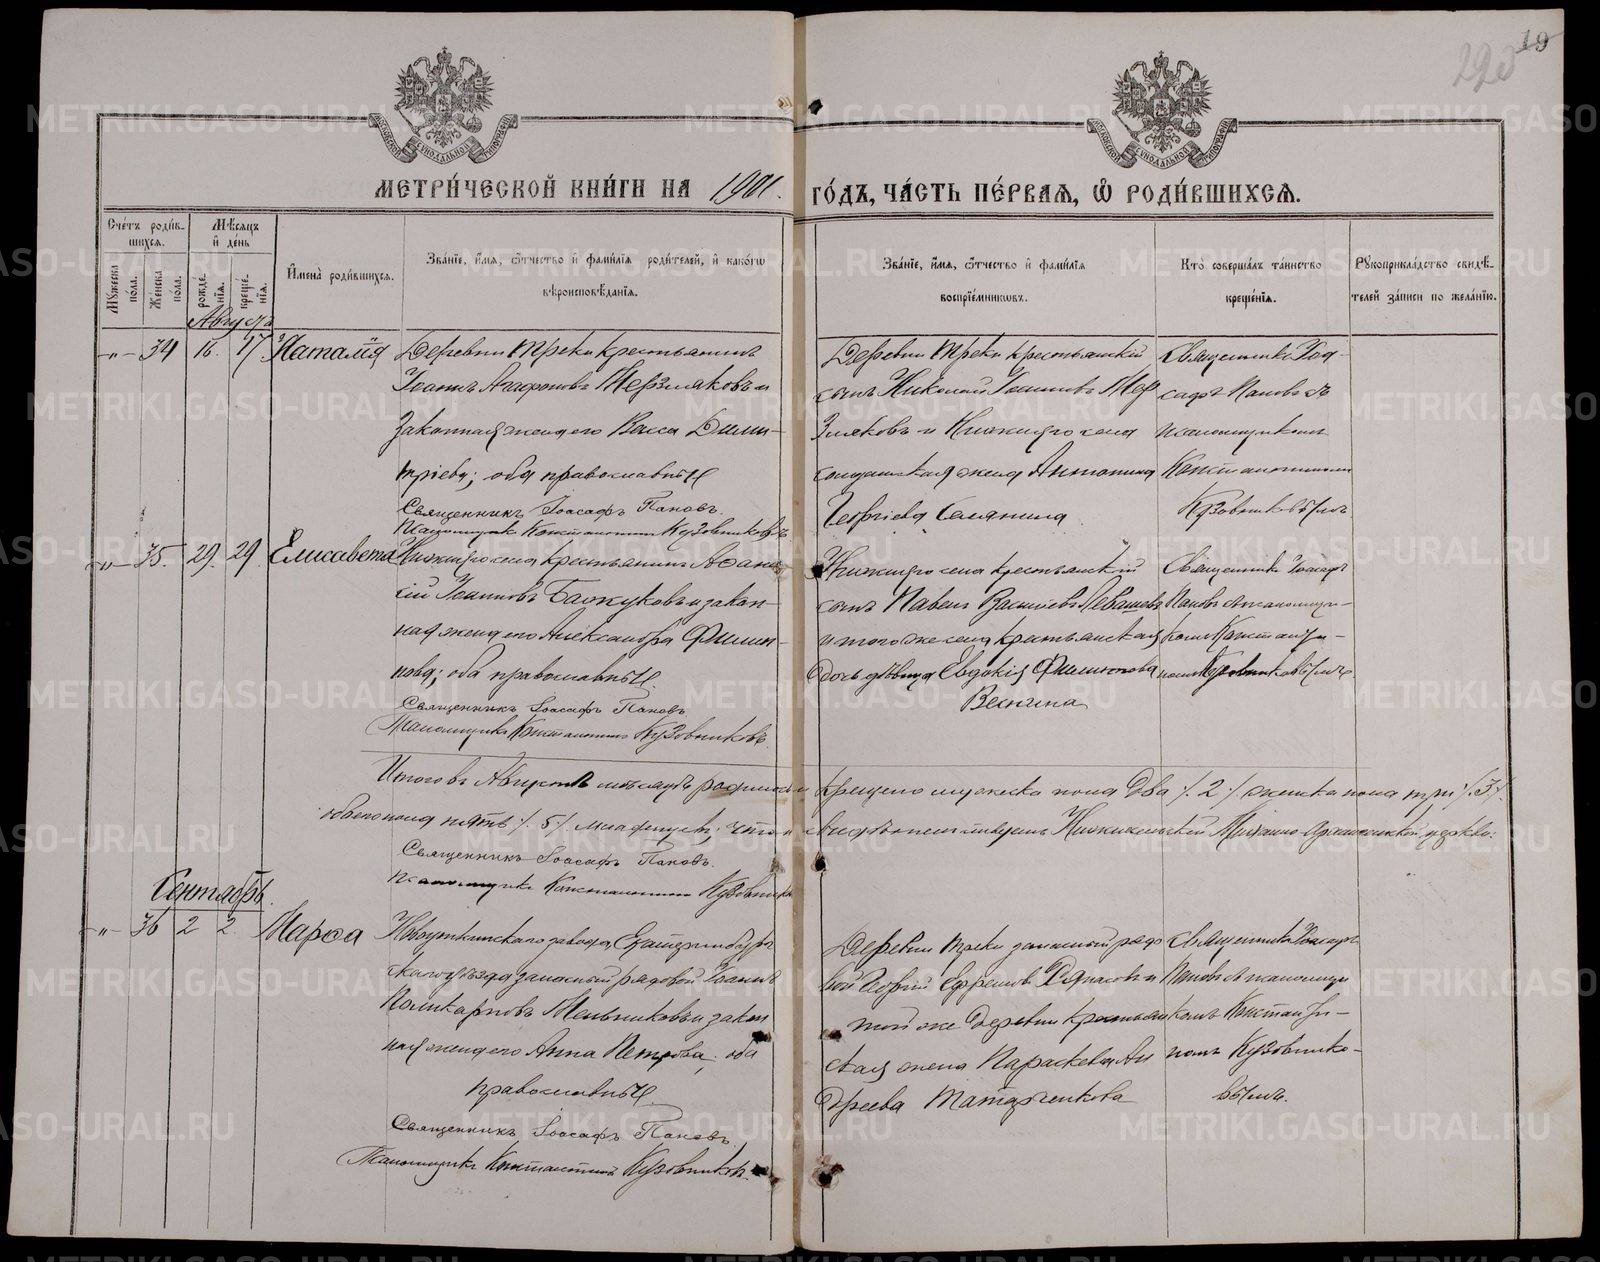 19
293
МОСКОВСКОЙ СУНОДАЛЬНОЙ ТИПОГРАФІИ
МОСКОВСКОЙ СУНОДАЛЬНОЙ ТИПОГРАФІИ
МЕТРИ́ЧЕСКОЙ КНИ́ГИ НА 1901. ГО́ДЪ, ЧА́СТЬ ПЕ́РВАЯ, Ѡ РОДИ́ВШИХСЯ.
Сче́тъ роди́в-
шихся.
Му́жеска по́ла.
Же́нска по́ла.
Мѣ́сяцъ
и҆ де́нь
рожде́нїя.
креще́нїя.
И҆мена̀ роди́вшихся.
Зва́нїе, и҆́мя, ѻ҆́тчество и҆ фами́лїя роди́телей, и҆ како́гѡ
вѣроисповѣ́данїя.
Зва́нїе, и҆́мя, ѻ҆́тчество и҆ фами́лїя
воспрїе́мниковъ.
Кто̀ соверша́лъ та́инство
креще́нїя.
Рꙋкоприкла́дство свидѣ́-
телей за́писи по жела́нїю.
Августъ
-"- 34 16. 17 Наталія
Деревни Треки крестьянинъ
Іоаннъ Агафоновъ Мерзляковъ и
законная жена его Васса Дими-
тріева; оба православные
Священникъ Іоасафъ Пановъ.
Псаломщикъ Константинъ Кузовниковъ
Деревни Треки крестьянскій
сынъ Николай Іоанновъ Мер
зляковъ и Нижняго села
солдатская жена Антонина
Георгіева Селянина
Священникъ Іоа-
сафъ Пановъ съ
псаломщикомъ
Константиномъ
Кузовниковымъ.
-"- 35. 29. 29. Елисавета
Нижняго села крестьянинъ Аѳана
сій Іоанновъ и закон-
ная жена его Александра Филип-
пова; оба православные
Священникъ Іоасафъ Пановъ
Псаломщикъ Константинъ Кузовниковъ.
Нижняго села крестьянскій
сынъ Павелъ Васильевъ Левашевъ
и того же села крестьянская
дочь дѣвица Евдокія Филиппова
Веснина
Священникъ Іоасафъ
Пановъ съ псаломщи-
комъ Константи-
номъ Кузовниковымъ
Итого въ Августѣ мѣсяцѣ родилось и крещено мужеска пола два /. 2 /. женска пола три /. 3 /.
обоего пола пять /. 5 /. младенцевъ; что и свидѣтельствуемъ Нижнесельской Михаило-Архангельской церкви:
Священникъ Іоасафъ Пановъ.
Псаломщикъ Константинъ Кузовниковъ
Сентябрь.
-"- 36 2 2 Марѳа
Новоуткинскаго завода, Екатеринбург
скаго уѣзда запасный рядовой Іоаннъ
Поликарповъ Мельниковъ и закон
ная жена его Анна Петрова; оба
православные
Священникъ Іоасафъ Пановъ.
Псаломщикъ Константинъ Кузовниковъ.
Деревни Треки запасный рядо
вой Георгій Ефремовъ и
той же деревни крестьян
ская жена Параскева Ан
дреева Татарченкова
Священникъ Іоасафъ
Пановъ съ псаломщи
комъ Константи-
номъ Кузовнико-
вымъ.